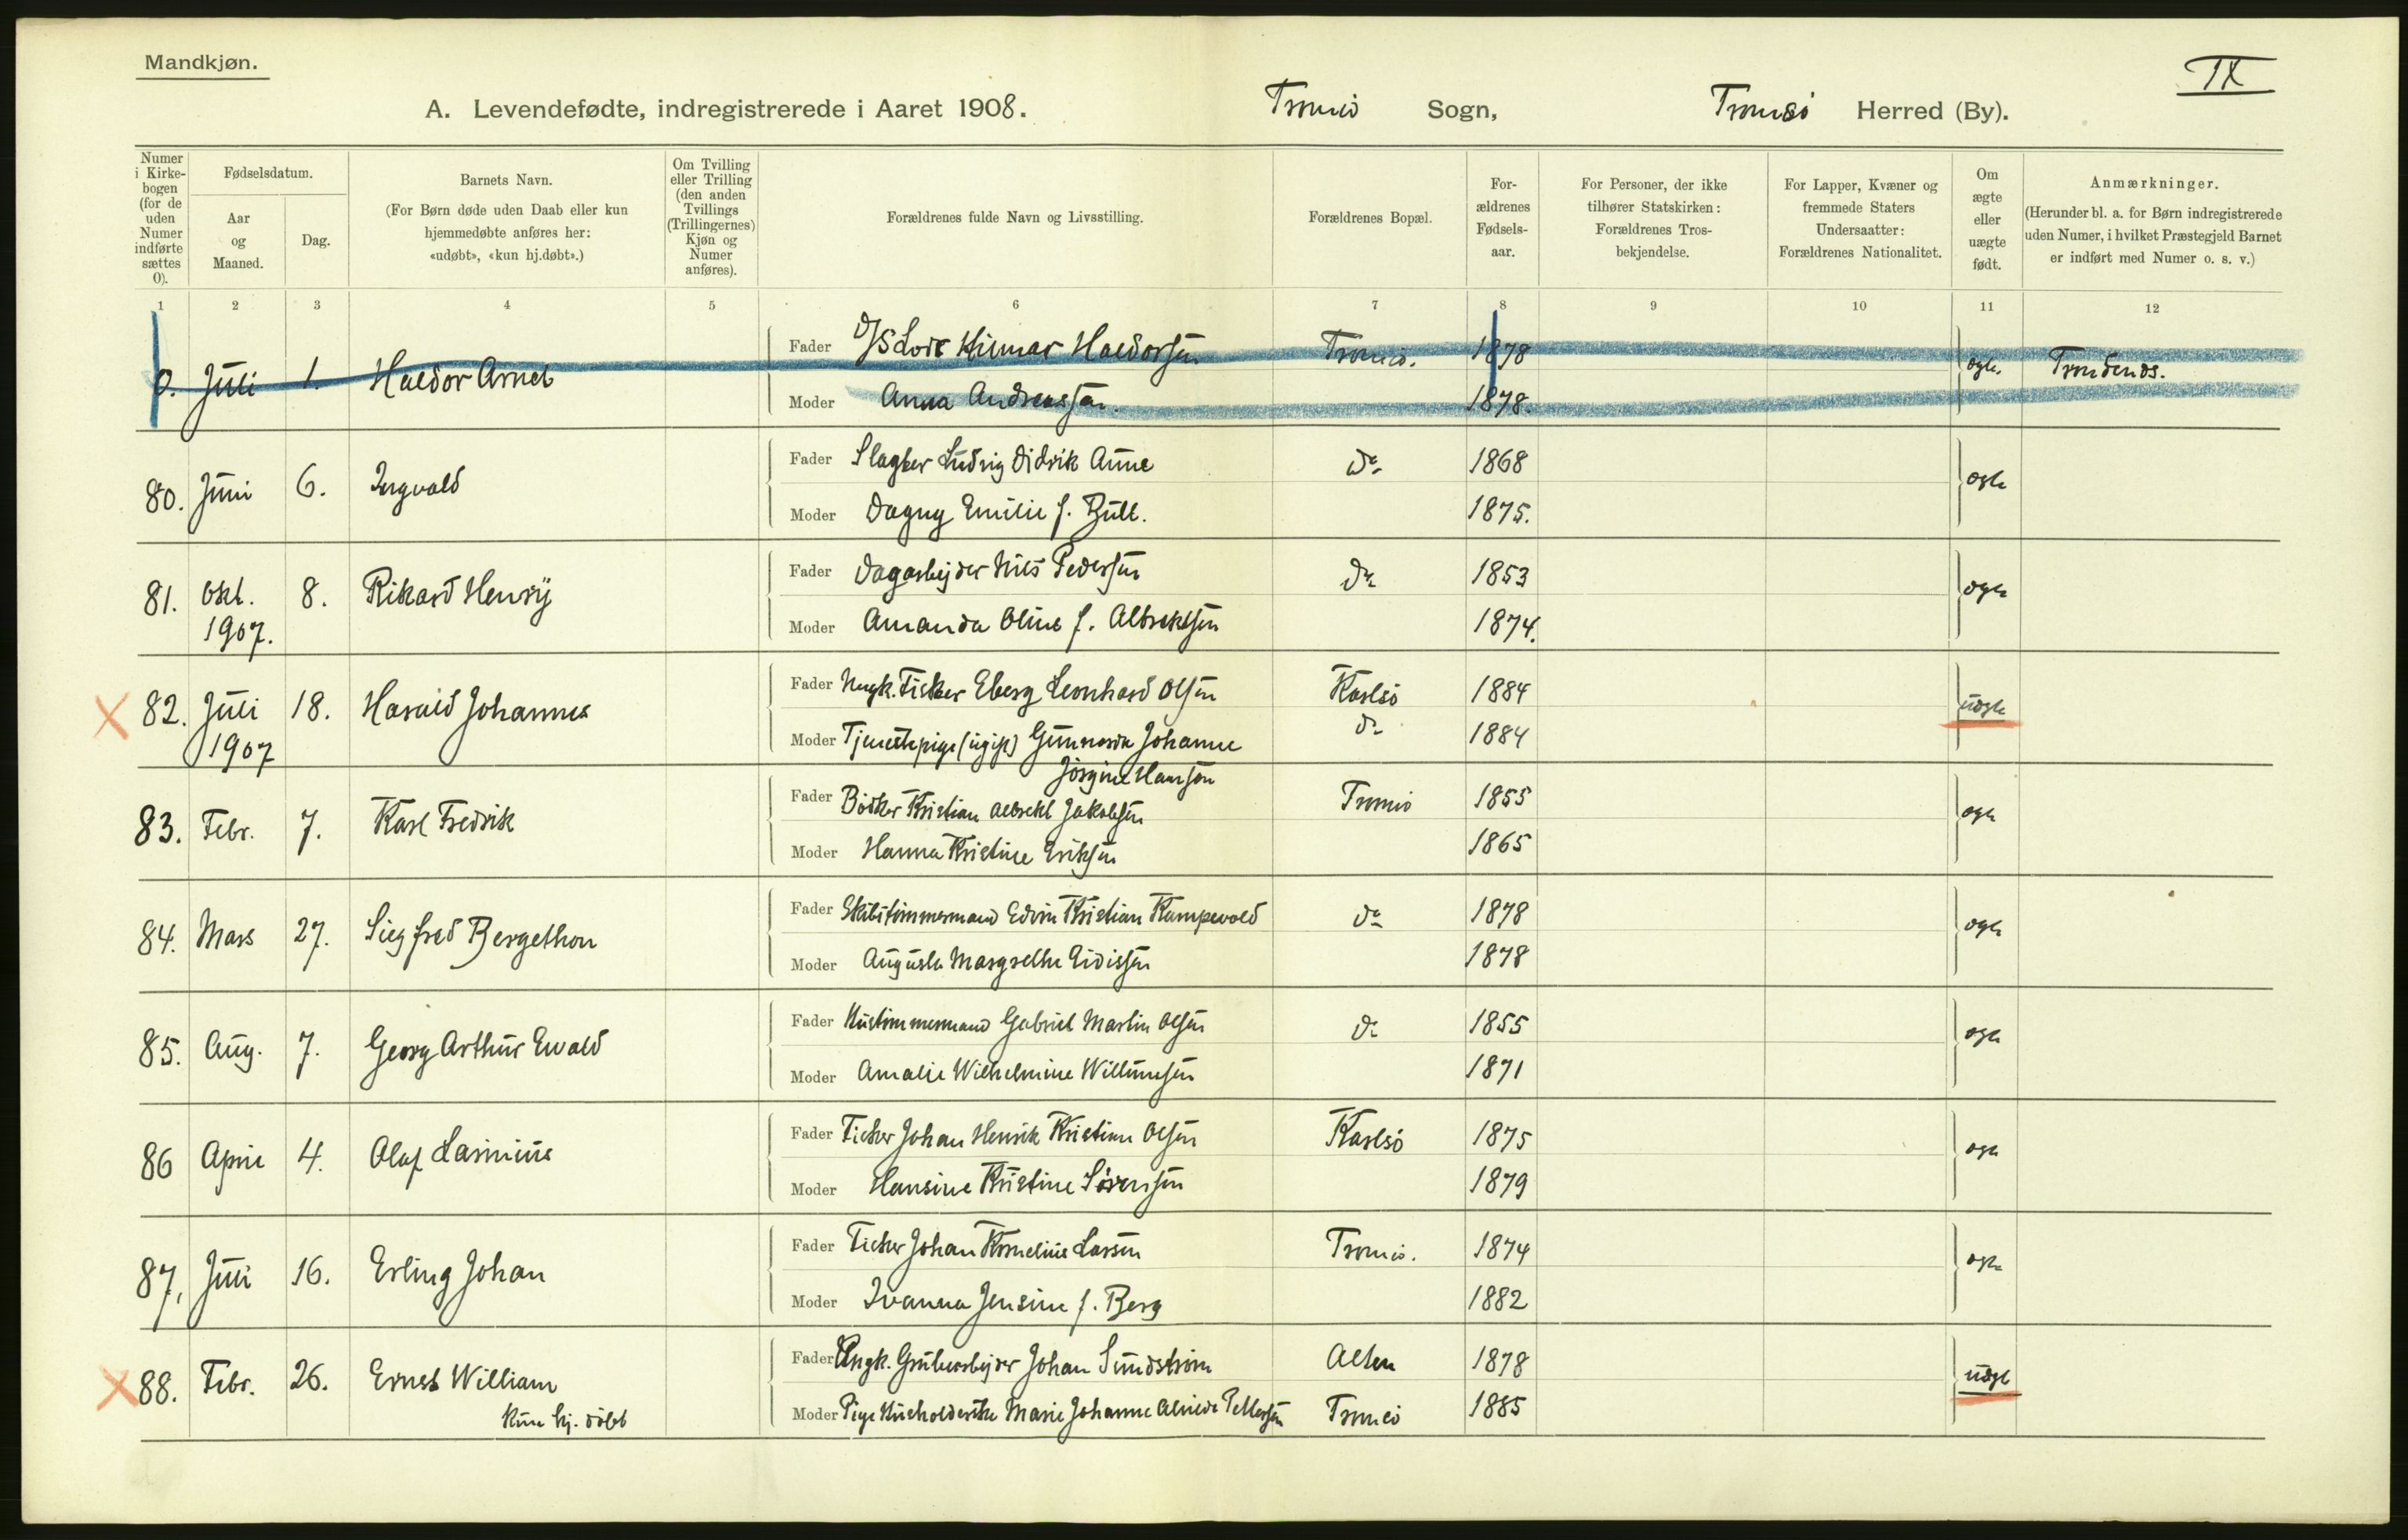 Mandkjøn.
IX
A. Levendefødte, indregistrerede i Aaret 1908. Tromsö Sogn, Tromsö Herred (By).
Numer i Kirkebogen (for de uden Numer indførte sættes 0).
Fødselsdatum.
Aar og Maaned.
Dag.
Barnets Navn.
(For Børn døde uden Daab eller kun hjemmedøbte anføres her: «udøbt», «kun hj.døbt».)
Om Tvilling eller Trilling (den anden Tvillings (Trillingernes) Kjøn og Numer anføres).
Forældrenes fulde Navn og Livsstilling.
Forældrenes Bopæl.
For-ældrenes Fødsels-aar.
For Personer, der ikke tilhører Statskirken: Forældrenes Tros-bekjendelse.
For Lapper, Kvæner og fremmede Staters Undersaatter: Forældrenes Nationalitet.
Om ægte eller uægte født.
Anmærkninger.
(Herunder bl. a. for Børn indregistrerede uden Numer, i hvilket Præstegjeld Barnet er indført med Numer o. s. v.)
1 2 3 4 5 6 7 8 9 10 11 12
0. Juli 1. Haldor Arnet
Fader D/S Lods Hilmar Haldorsen Tromsö. 1878 ægte. Trondenæs.
Moder Anna Andreassen. 1878.
80. Juni 6. Ingvald
Fader Slagter Ludvig Didrik Aune do 1868 ægte
Moder Dagny Emilie f. Bull. 1875.
81. Okt. 1907. 8. Rikard Henry
Fader Dagarbejder Nils Pedersen do 1853 ægte
Moder Amanda Oline f. Albrektsen 1874.
82. Juli 1907 18. Harald Johannes
Fader Ungk. Fisker Eberg Leonhard Olsen Karlsö 1884 uægte
Moder Tjenestepige (ugift) Gunnarda Johanne Jörgine Hansen do 1884
83. Febr. 7. Karl Fredrik
Fader Bödker Kristian Albrekt Jakobsen Tromsö 1855 ægte
Moder Hanna Kristine Eriksen 1865
84. Mars 27. Siegfred Bergethon
Fader Skibstömmermand Edvin Kristian Kampevold do 1878 ægte
Moder Augusta Margrethe Eidissen 1878
85. Aug. 7. Georg Arthur Ewald
Fader Hustömmermand Gabriel Martin Olsen do 1855 ægte
Moder Amalie Wilhelmine Willumsen 1871
86 April 4. Olaf Lasinius
Fader Fisker Johan Henrik Kristian Olsen Karlsö 1875 ægte
Moder Hansine Kristine Sörensen 1879
87, Juli 16. Erling Johan
Fader Fisker Johan Kornelius Larsen Tromsö. 1874 ægte
Moder Ivanna Jensine f. Berg 1882
88. Febr. 26. Ernst William
kun hj. döbt
Fader Ungk. Grubearbejder Johan Sundström Alten 1878 uægte
Moder Pige Husholderske Marie Johanne Almida Pettersen Tromsö 1885